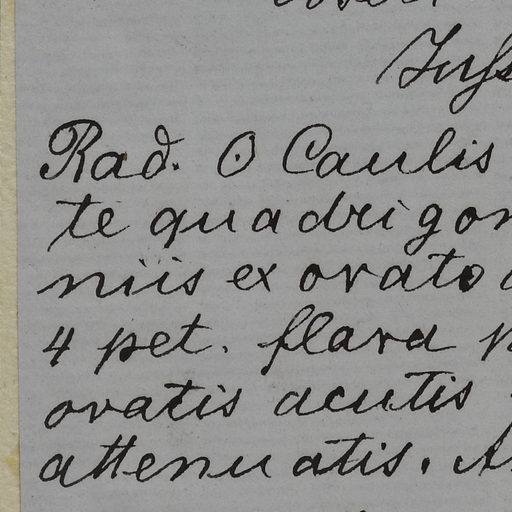 Rad. ʘ Caulis
te quadrigon
niis ex ovato
4 pet. flava
ovatis acutis
attenuatis.